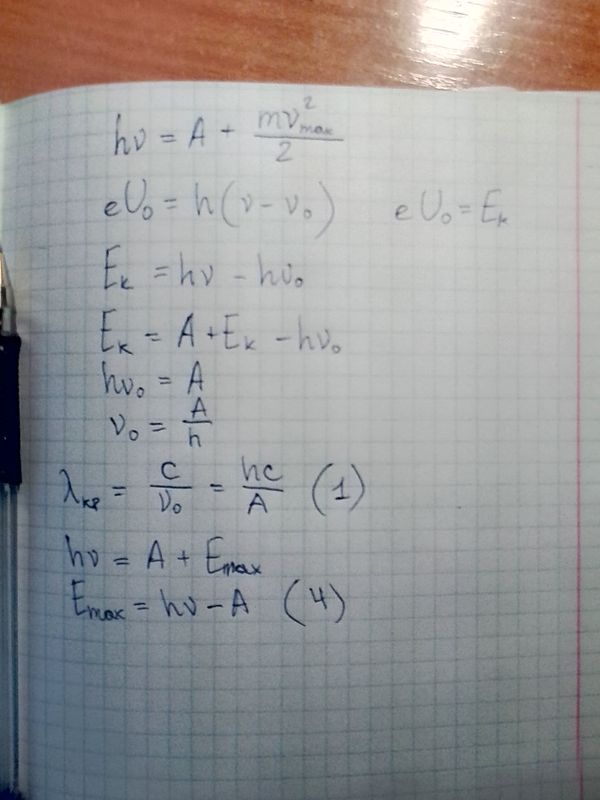 hν = A + mv²max / 2
eU₀ = h(ν − ν₀) eU₀ = Eк
Eк = hν − hν₀
Eк = A + Eк − hν₀
hν₀ = A
ν₀ = A / h
λкр = c / ν₀ = hc / A (1)
hν = A + Emax
Emax = hν − A (4)